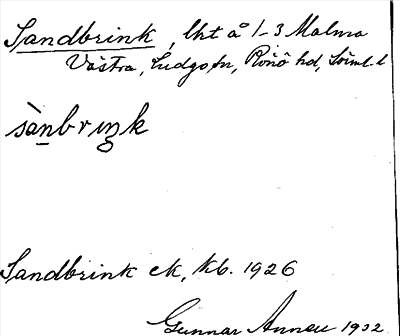 Sandbrink, lht å 1-3 Malma
Västra, Ludgo sn, Rönö hd, Söml. l
sànbriŋk
Sandbrink ek, kb. 1926
Gunnar Annell 1932